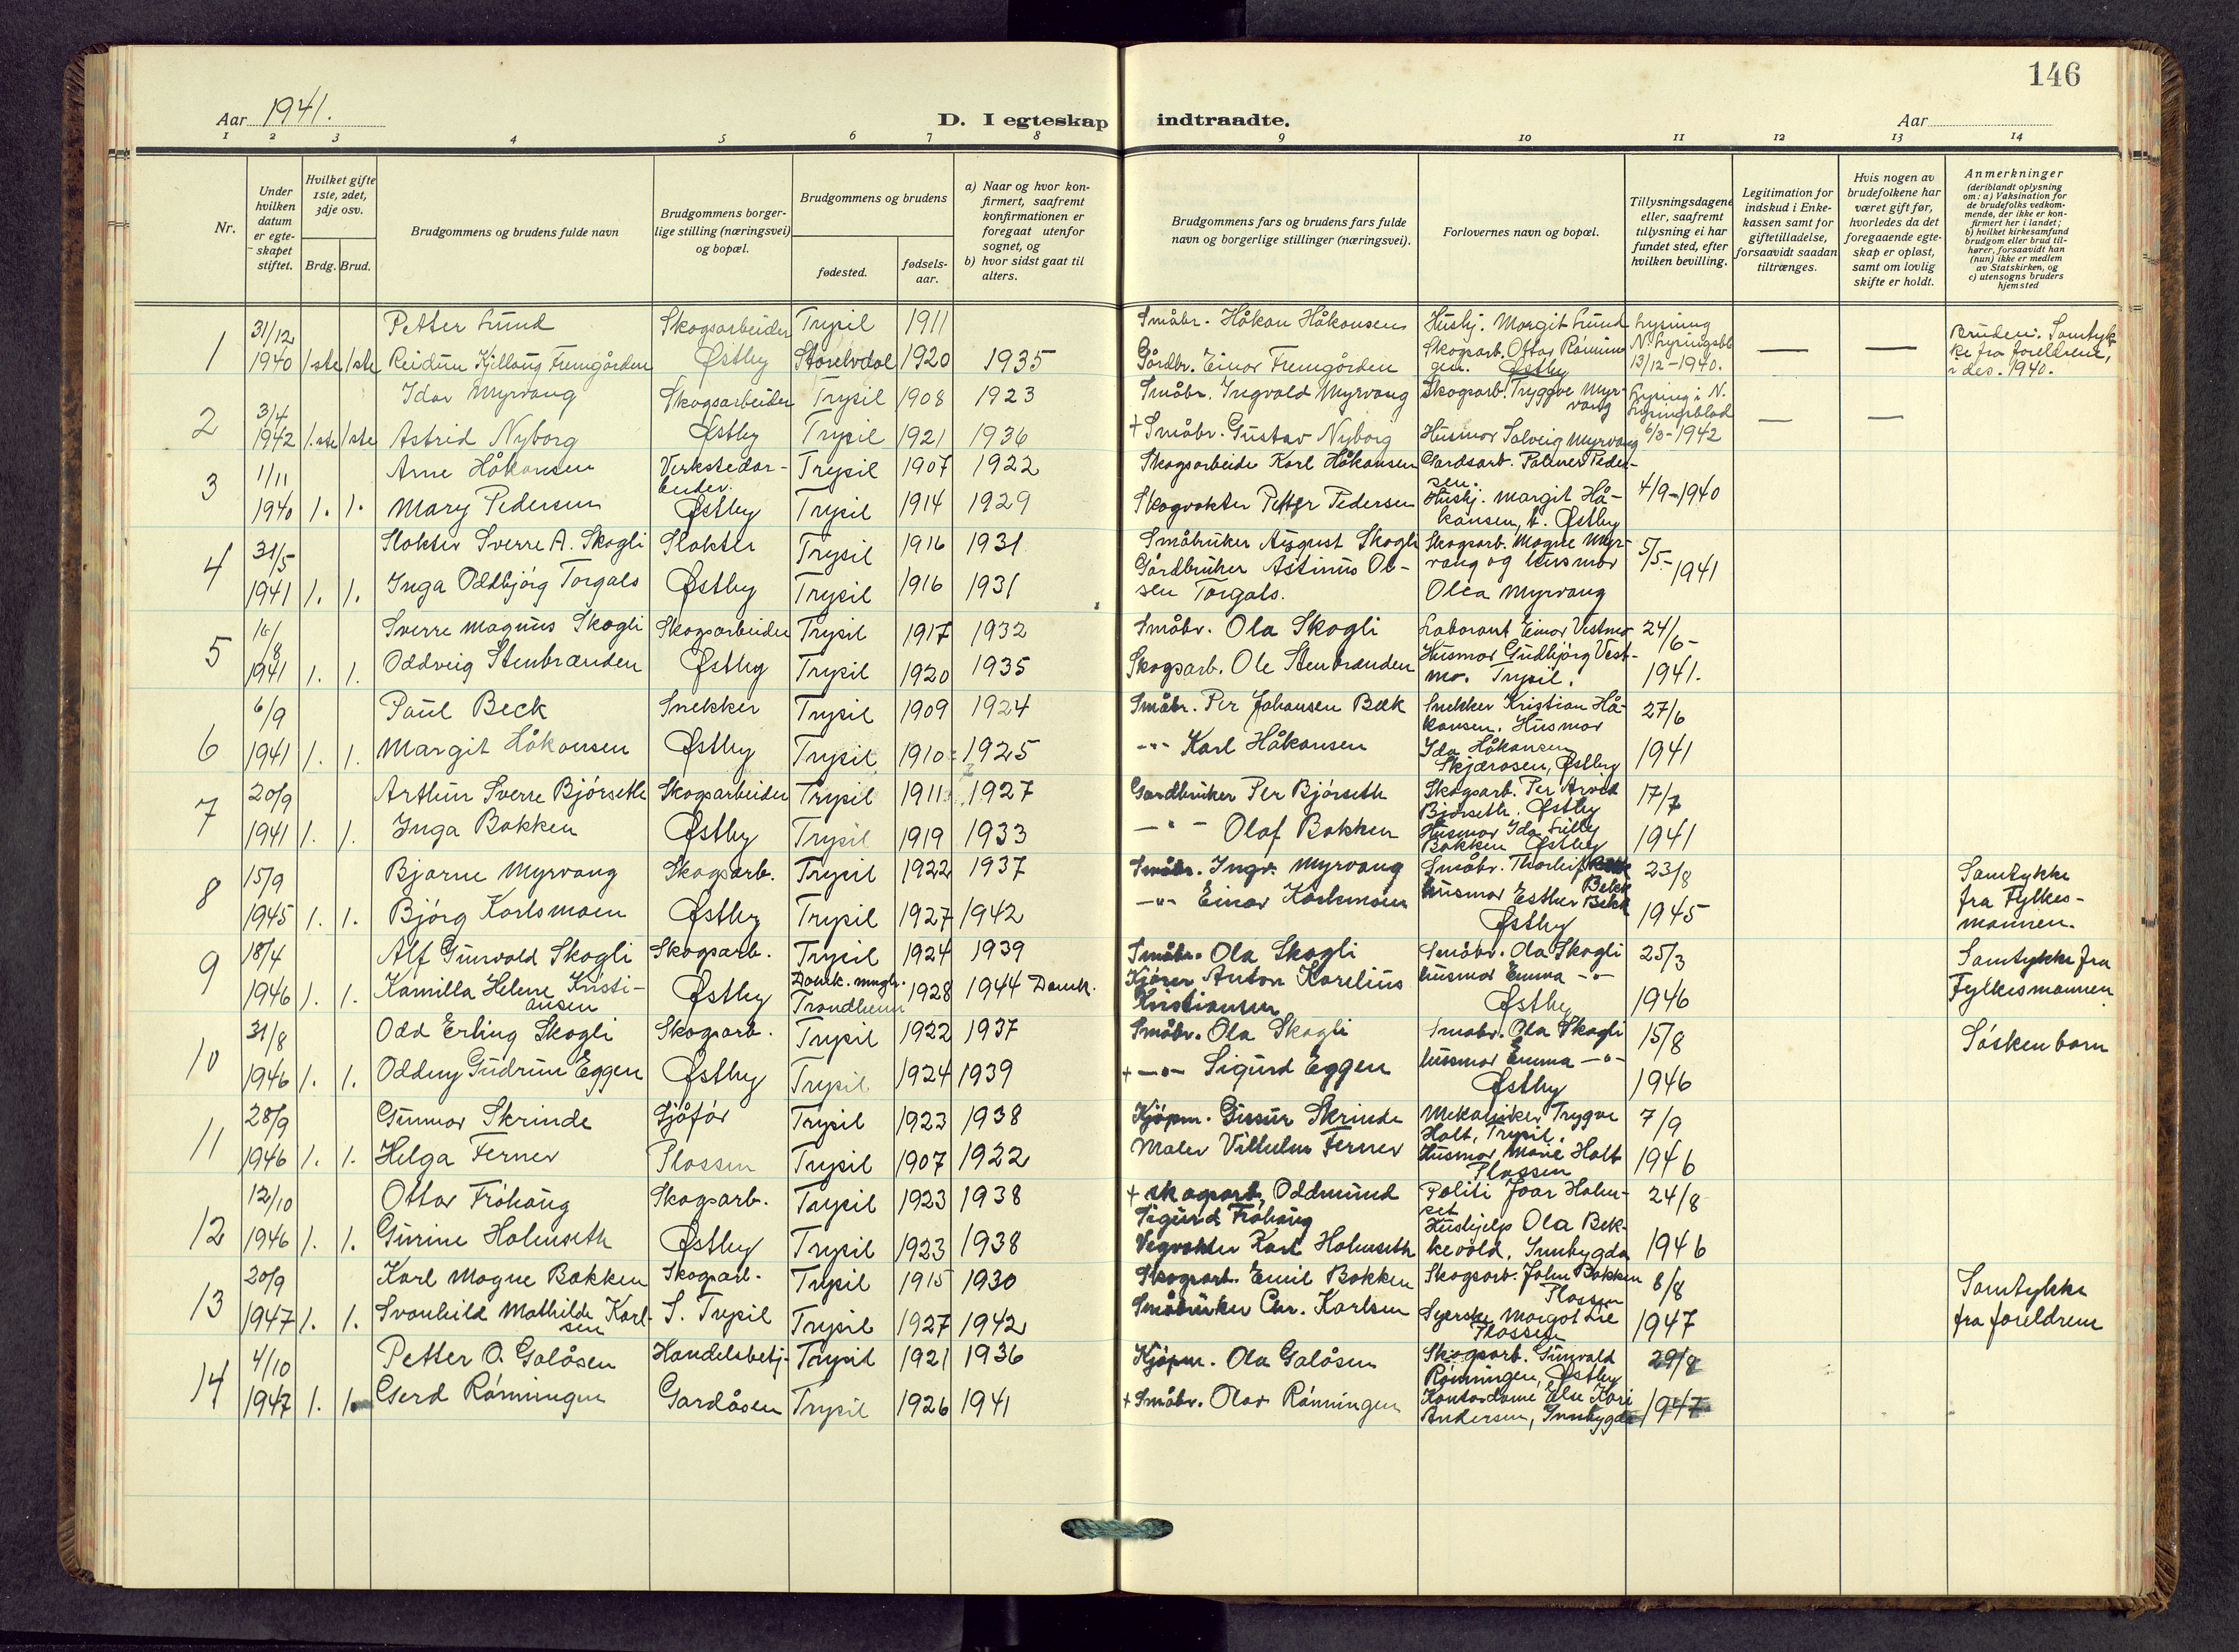 146
Aar 1941.
D. I egteskap indtraadte.
Aar
1 2 3 4 5 6 7 8 9 10 11 12 13 14
Nr.
Under hvilken datum er egteskapet stiftet.
Hvilket gifte 1ste, 2det, 3dje osv.
Brdg. Brud.
Brudgommens og brudens fulde navn
Brudgommens borgerlige stilling (næringsvei) og bopæl.
Brudgommens og brudens
fødested.
fødselsaar.
a) Naar og hvor konfirmert, saafremt konfirmationen er foregaat utenfor sognet, og
b) hvor sidst gaat til alters.
Brudgommens fars og brudens fars fulde navn og borgerlige stillinger (næringsvei).
Forlovernes navn og bopæl.
Tillysningsdagene eller, saafremt tillysning ei har fundet sted, efter hvilken bevilling.
Legitimation for indskud i Enkekassen samt for giftetilladelse, forsaavidt saadan tiltrænges.
Hvis nogen av brudefolkene har været gift før, hvorledes da det foregaaende egteskap er opløst, samt om lovlig skifte er holdt.
Anmerkninger (deriblandt oplysning om: a) Vaksination for de brudefolks vedkommende, der ikke er konfirmert her i landet; b) hvilket kirkesamfund brudgom eller brud tilhører, forsaavidt han (hun) ikke er medlem av Statskirken, og c) utensogns bruders hjemsted
1 31/12 Petter Lund Skogsarbeider Trysil 1911 Småbr. Håkon Håkonsen Hushj. Margit Lund Lysning
1940 1ste 1ste Reidun Kjellaug Fremgården Østby Storelvdal 1920 1935 Gårdbr. Einar Fremgården Skogsarb. Ottar Rønningen. Østby N. Lysningsbl 13/12-1940. — — Bruden: Samtykke fra foreldrene, des. 1940.
2 3/4 Idar Myrvang Skogsarbeider Trysil 1908 1923 Småbr. Ingvald Myrvang Skogsarb. Tryggve Myrvang Lysning i N. Lysningsblad
1942 1.ste 1ste Astrid Nyborg Østby Trysil 1921 1936 + Småbr. Gustav Nyborg Husmor Solveig Myrvang 6/3-1942 — —
3 1/11 Arne Håkonsen Verkstedarbeider. Trysil 1907 1922 Skogsarbeider Karl Håkansen Gardsarb. Palmer Pedersen.
1940 1. 1. Mary Pedersen Østby Trysil 1914 1929 Skogvokter Petter Pedersen Hushj. Margit Håkansen, Østby 4/9-1940
4 31/5 Slakter Sverre A. Skogli Slakter Trysil 1916 1931 Småbruker August Skogli Skogsarb. Magne Myrvang og husmor 5/5-
1941 1. 1. Inga Oddbjørg Torgals Østby Trysil 1916 1931 Gårdbruker Astinus Olsen Torgals. Olea Myrvang 1941
5 16/8 Sverre Magnus Skogli Skogsarbeider Trysil 1917 1932 Småbr. Ola Skogli Laborant Einar Vestmo 24/6-
1941 1. 1. Oddveig Stenbrænden Østby Trysil 1920 1935 Skogsarb. Ole Stenbrænden Husmor Gudbjørg Vestmo. Trysil. 1941.
6 6/9 Paul Beck Snekker Trysil 1909 1924 Småbr. Per Johansen Bæk Snekker Kristian Håkansen. Husmor 27/6
1941 1. 1. Margit Håkansen Østby Trysil 1910 1925 -"- Karl Håkansen Ida Håkansen Skjærosen, Østby 1941
7 20/9 Arthur Sverre Bjørseth Skogsarbeider Trysil 1911 1927 Gardbruker Per Bjørseth Skogsarb. Per Arvid Bjørseth. Østby 17/7
1941 1. 1. Inga Bakken Østby Trysil 1919 1933 -"- Olaf Bakken Husmor Ida Lilly Bakken Østby 1941
8 15/9 Bjarne Myrvang Skogsarb. Trysil 1922 1937 Småbr. Ingv. Myrvang Småbr. Thorleif Bekk 23/8 Samtykke
1945 1. 1. Bjørg Karlsmoen Østby Trysil 1927 1942 -"- Einar Karlsmoen husmor Esther Bekk Østby 1945 fra Fylkesmannen.
9 18/4 Alf Gunvald Skogli Skogsarb. Trysil 1924 1939 Småbr. Ola Skogli Småbr. Ola Skogli 25/3 Samtykke fra
1946 1. 1. Kamilla Helene Kristiansen Østby Domk. mngh. Trondheim 1928 1944 Domk. Kjører Anton Karelius Kristiansen husmor Emma -"- Østby 1946 Fylkesmannen
10 31/8 Odd Erling Skogli Skogsarb. Trysil 1922 1937 Småbr. Ola Skogli Småbr. Ola Skogli 15/8 Søskenbarn
1946 1. 1. Oddny Gudrun Eggen Østby Trysil 1924 1939 + -"- Sigurd Eggen husmor Emma -"- Østby 1946
11 28/9 Gunnar Skrinde Sjåfør Trysil 1923 1938 Kjøpm. Gissur Skrinde Mekaniker Trygve Holt, Trysil. 7/9
1946 1. 1. Helga Ferner Plassen Trysil 1907 1922 Maler Vilhelm Ferner Husmor Marie Holt Plassen 1946
12 12/10 Ottar Frøhaug Skogsarb. Trysil 1923 1938 + skogsarb. Oddmund Sigurd Frøhaug Politi Joar Holmset 24/8
1946 1. 1. Gurine Holmseth Østby Trysil 1923 1938 Vegvokter Karl Holmseth Hushjelp Ola Bekkevold, Innbygda 1946
13 20/9 Karl Magne Bakken Skogsarb. Trysil 1915 1930 Skogsarb. Emil Bakken Skogsarb. John Bakken Plassen 8/8 Samtykke
1947 1. 1. Svanhild Mathilde Karlsen S. Trysil Trysil 1927 1942 Småbruker Chr. Karlsen Syerske Margot Lie Plassen 1947 fra foreldrene
14 4/10 Petter O. Galåsen Handelsbetj. Trysil 1921 1936 Kjøpm. Ola Galåsen Skogsarb. Gunvald Rønningen, Østby 29/8
1947 1. 1. Gerd Rønningen Gardåsen Trysil 1926 1941 + Småbr. Olav Rønningen Kontordame Else Kari Andersen, Innbygda 1947